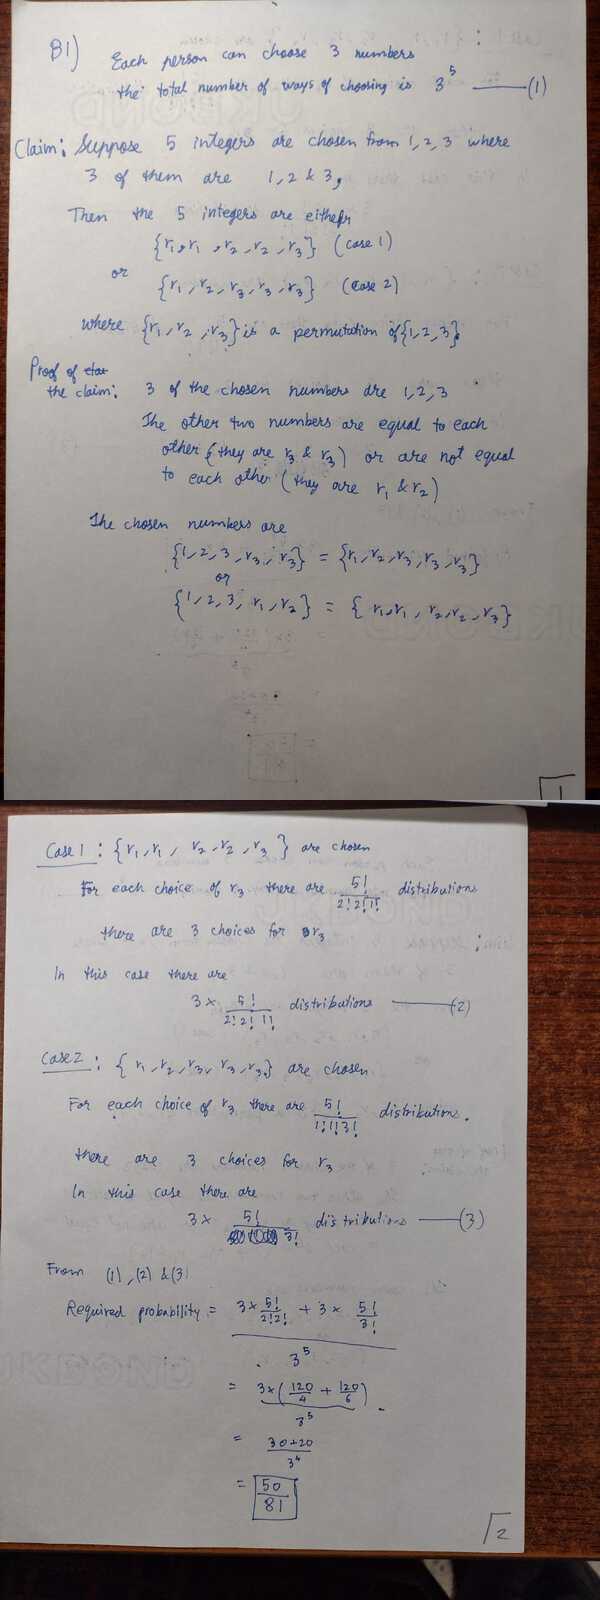 B1) Each person can choose 3 numbers
the total number of ways of choosing is 3^5 —— (1)
Claim: Suppose 5 integers are chosen from 1, 2, 3 where
3 of them are 1, 2 & 3,
Then the 5 integers are either
{r₁, r₁, r₂, r₂, r₃} (case 1)
or
{r₁, r₂, r₃, r₃, r₃} (case 2)
where {r₁, r₂, r₃} is a permutation of {1, 2, 3}.
Proof of
the claim: 3 of the chosen numbers are 1, 2, 3
The other two numbers are equal to each
other (they are r₃ & r₃) or are not equal
to each other (they are r₁ & r₂)
The chosen numbers are
{1, 2, 3, r₃, r₃} = {r₁, r₂, r₃, r₃, r₃}
or
{1, 2, 3, r₁, r₂} = {r₁, r₁, r₂, r₂, r₃}
1
Case 1 : {r₁, r₁, r₂, r₂, r₃} are chosen
For each choice of r₃ there are 5!/2!2!1! distributions
there are 3 choices for r₃
In this case there are
3 × 5!/2!2!1! distributions —— (2)
Case 2 : {r₁, r₂, r₃, r₃, r₃} are chosen
For each choice of r₃ there are 5!/1!1!3! distributions.
there are 3 choices for r₃
In this case there are
3 × 5!/3! distributions —— (3)
From (1), (2) & (3)
Required probability = (3 × 5!/2!2! + 3 × 5!/3!)/3^5
= 3 × (120/4 + 120/6)/3^5
= 30+20/3^4
= 50/81
2